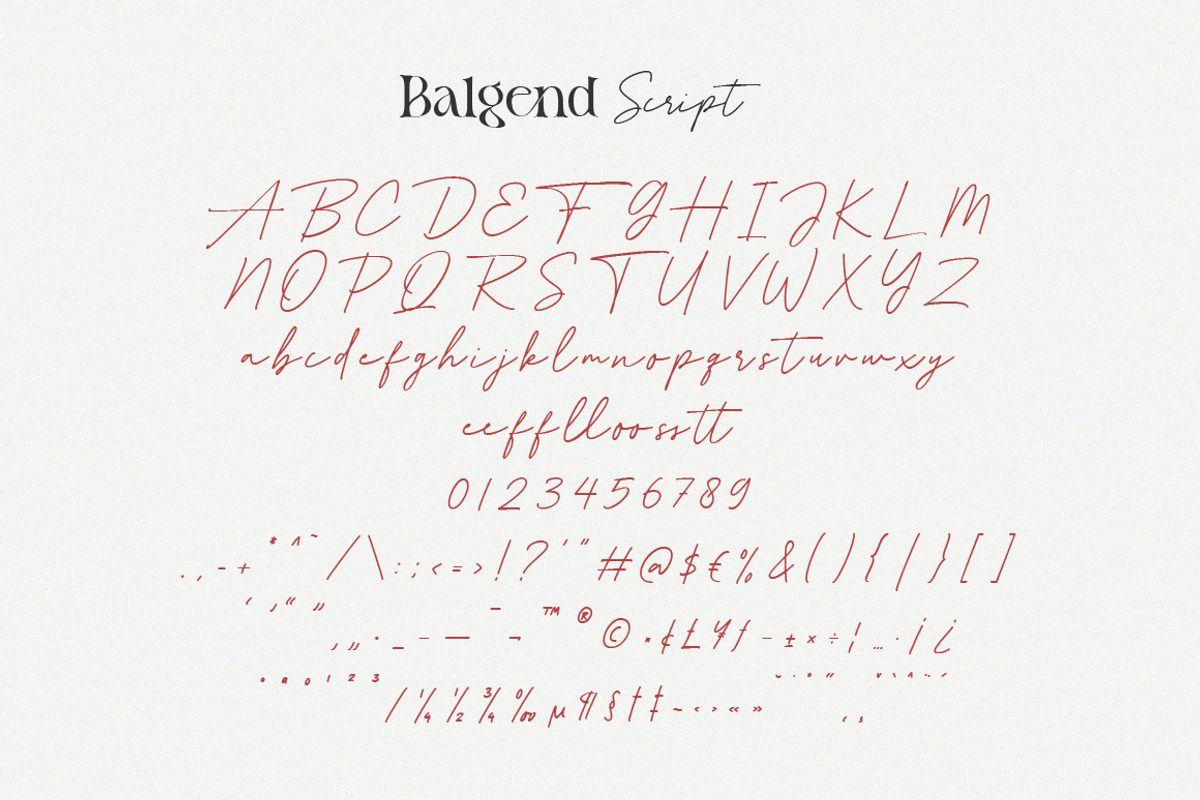 Balgend Script
ABCDEFGHIJKLM
NOPQRSTUVWXYZ
abcdefghijklmnopqrstuvwxy
eefflloosstt
0123456789
.,-+*^~/\:;<=>!?'"#@$€%&(){|}[]
‘’“”‚„•_–—¯¬™®©·¢£¥ƒ−±×÷¦…·¡¿
ºª0123⁄¼½¾‰µ¶§†‡~‹›«»